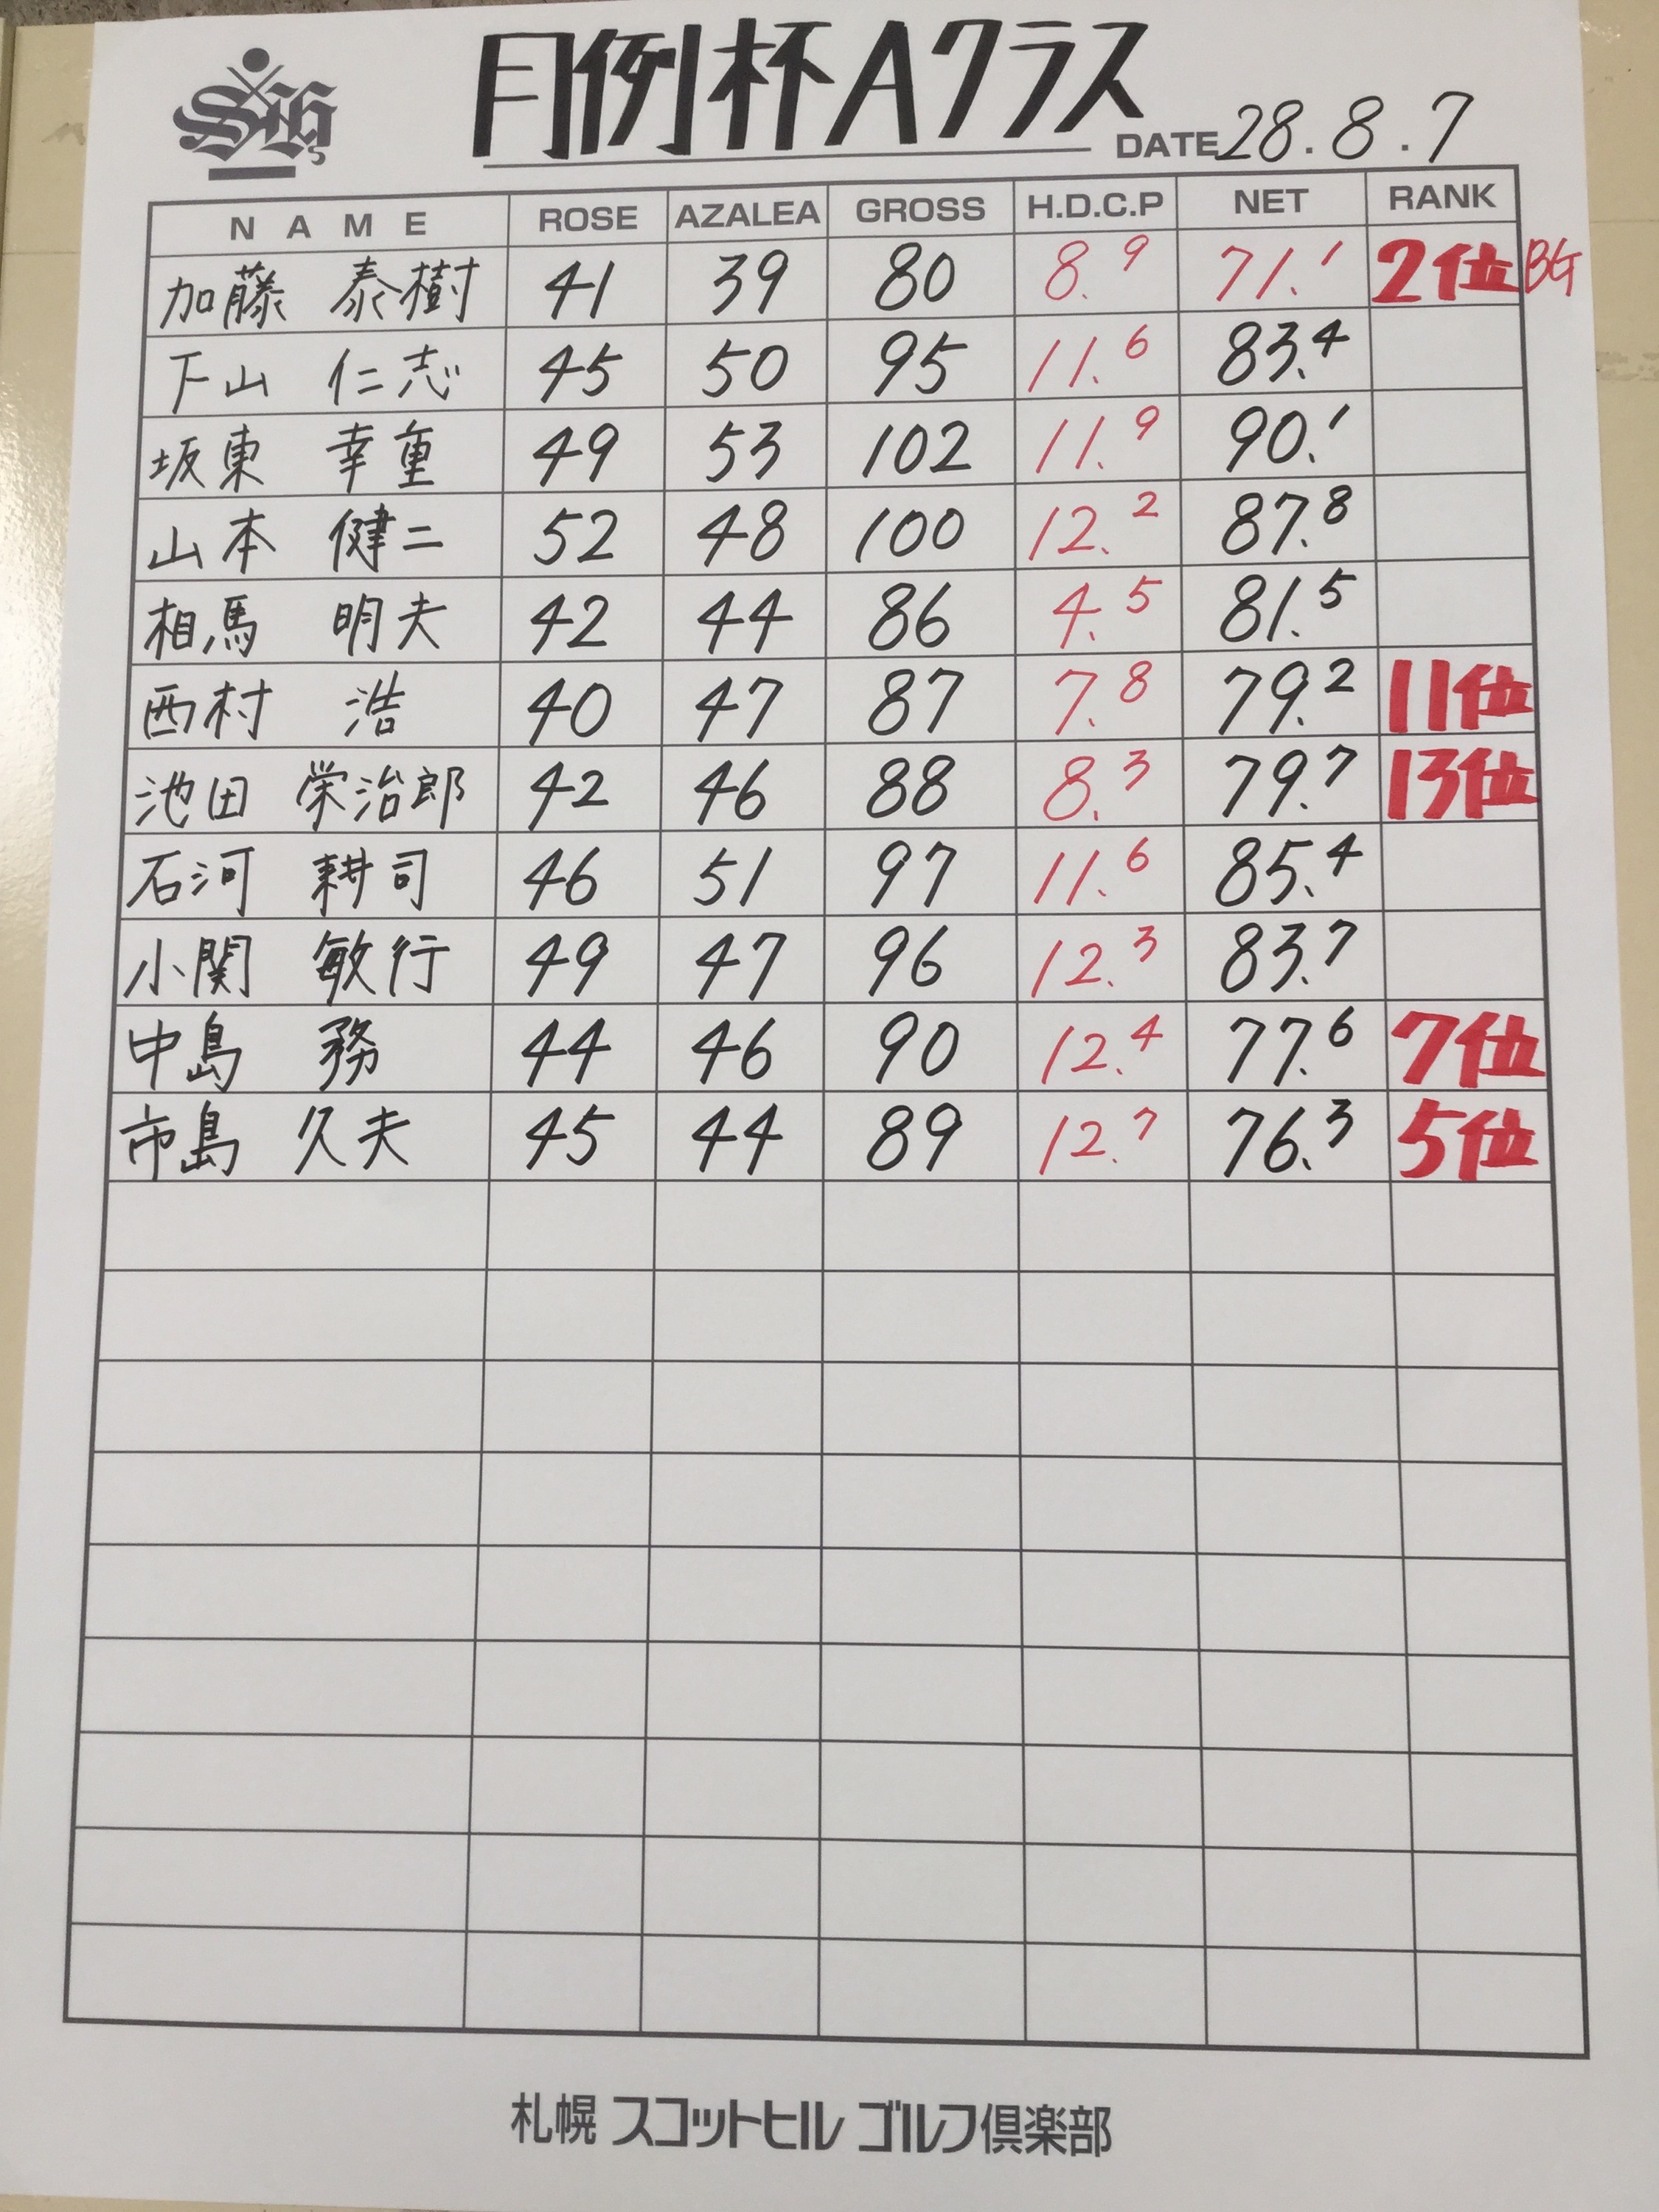 月例杯Aクラス
DATE 28.8.7
NAME ROSE AZALEA GROSS H.D.C.P NET RANK
加藤 泰樹 41 39 80 8.9 71.1 2位 BG
下山 仁志 45 50 95 11.6 83.4
坂東 幸重 49 53 102 11.9 90.1
山本 健二 52 48 100 12.2 87.8
相馬 明夫 42 44 86 4.5 81.5
西村 浩 40 47 87 7.8 79.2 11位
池田 栄治郎 42 46 88 8.3 79.7 13位
石河 耕司 46 51 97 11.6 85.4
小関 敏行 49 47 96 12.3 83.7
中島 務 44 46 90 12.4 77.6 7位
市島 久夫 45 44 89 12.7 76.3 5位
札幌 スコットヒル ゴルフ倶楽部